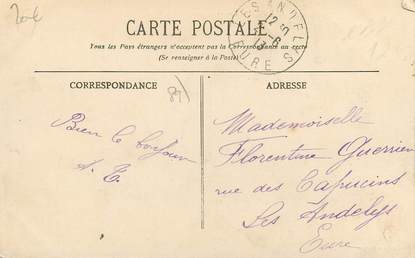 CARTE POSTALE
Tous les Pays étrangers n'acceptent pas la Correspondance au recto
(Se renseigner à la Poste)
LES ANDELYS
EURE
CORRESPONDANCE
ADRESSE
Bien le bonjour
A. T.
Mademoiselle
Florentine Guerrien
rue des Capucins
Les Andelys
Eure